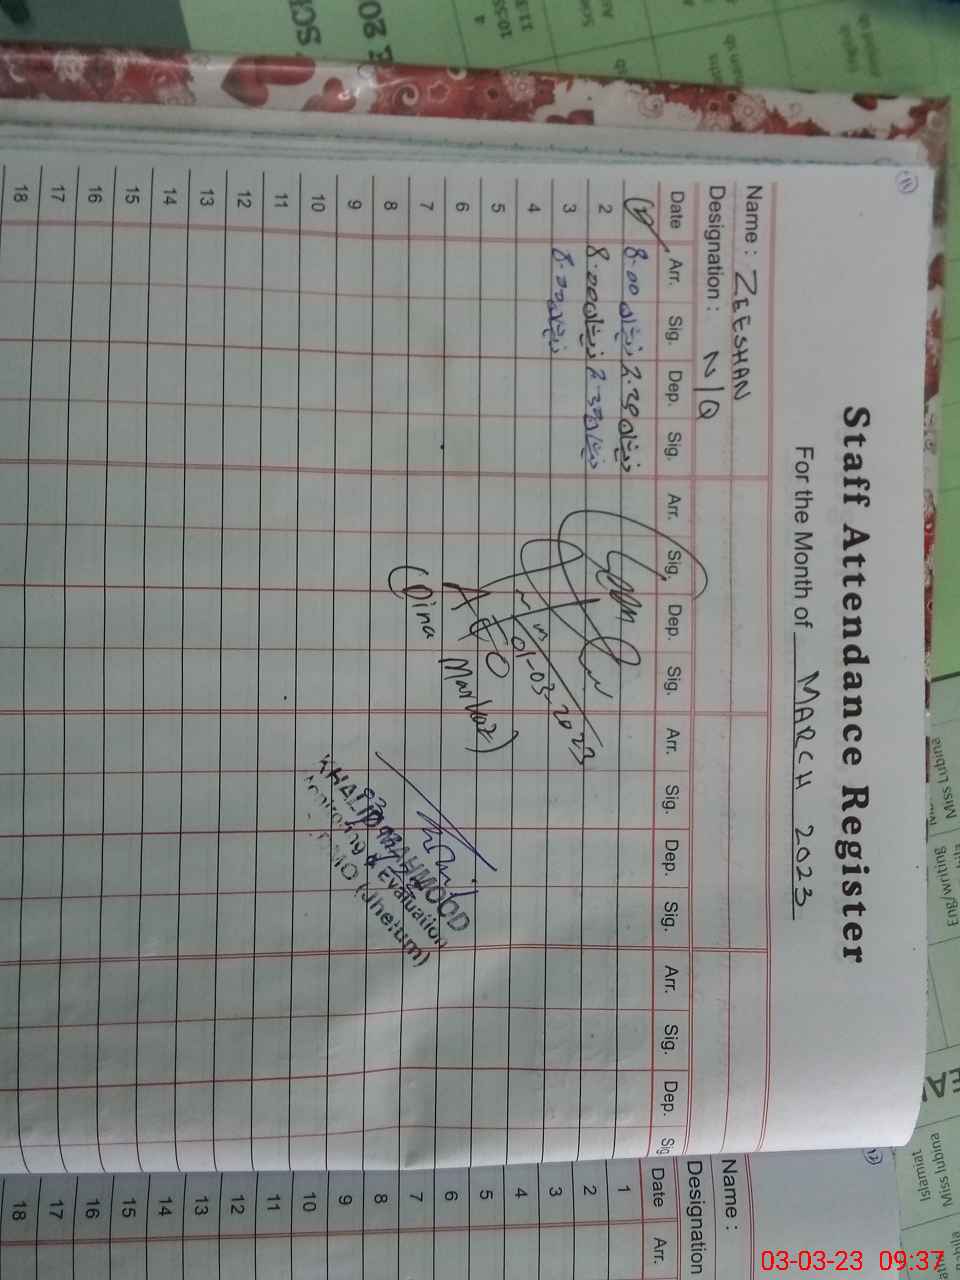 Staff Attendance Register
For the Month of MARCH 2023
Name : ZEESHAN
Designation : N/Q
Date Arr. Sig. Dep. Sig. Arr. Sig. Dep. Sig. Arr. Sig. Dep. Sig. Arr. Sig. Dep. Sig
1 8.00 ذیشان 2.30 ذیشان
2 8.00 ذیشان 2.30 ذیشان
3 8.00 ذیشان
4
5
6
7
8
9
10
11
12
13
14
15
16
17
18
01-03-2023
AEO
(Dina
MAHMOOD
Monitoring & Evaluation
(Jhelum)
Name :
Designation
Date Arr.
1
2
3
4
5
6
7
8
9
10
11
12
13
14
15
16
17
18
Miss Lubina
Eng/writing
Miss lubina
Islamiat
03-03-23 09:37